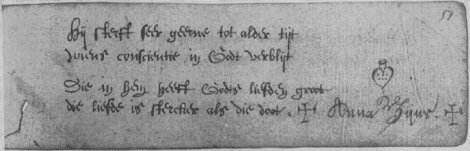 Hij sterft seer geerne tot alder tijt
wiens conscientie in Godt verblijt
Die in hem heeft Godts liefden groot
die liefde is stercker als die doot.
Anna